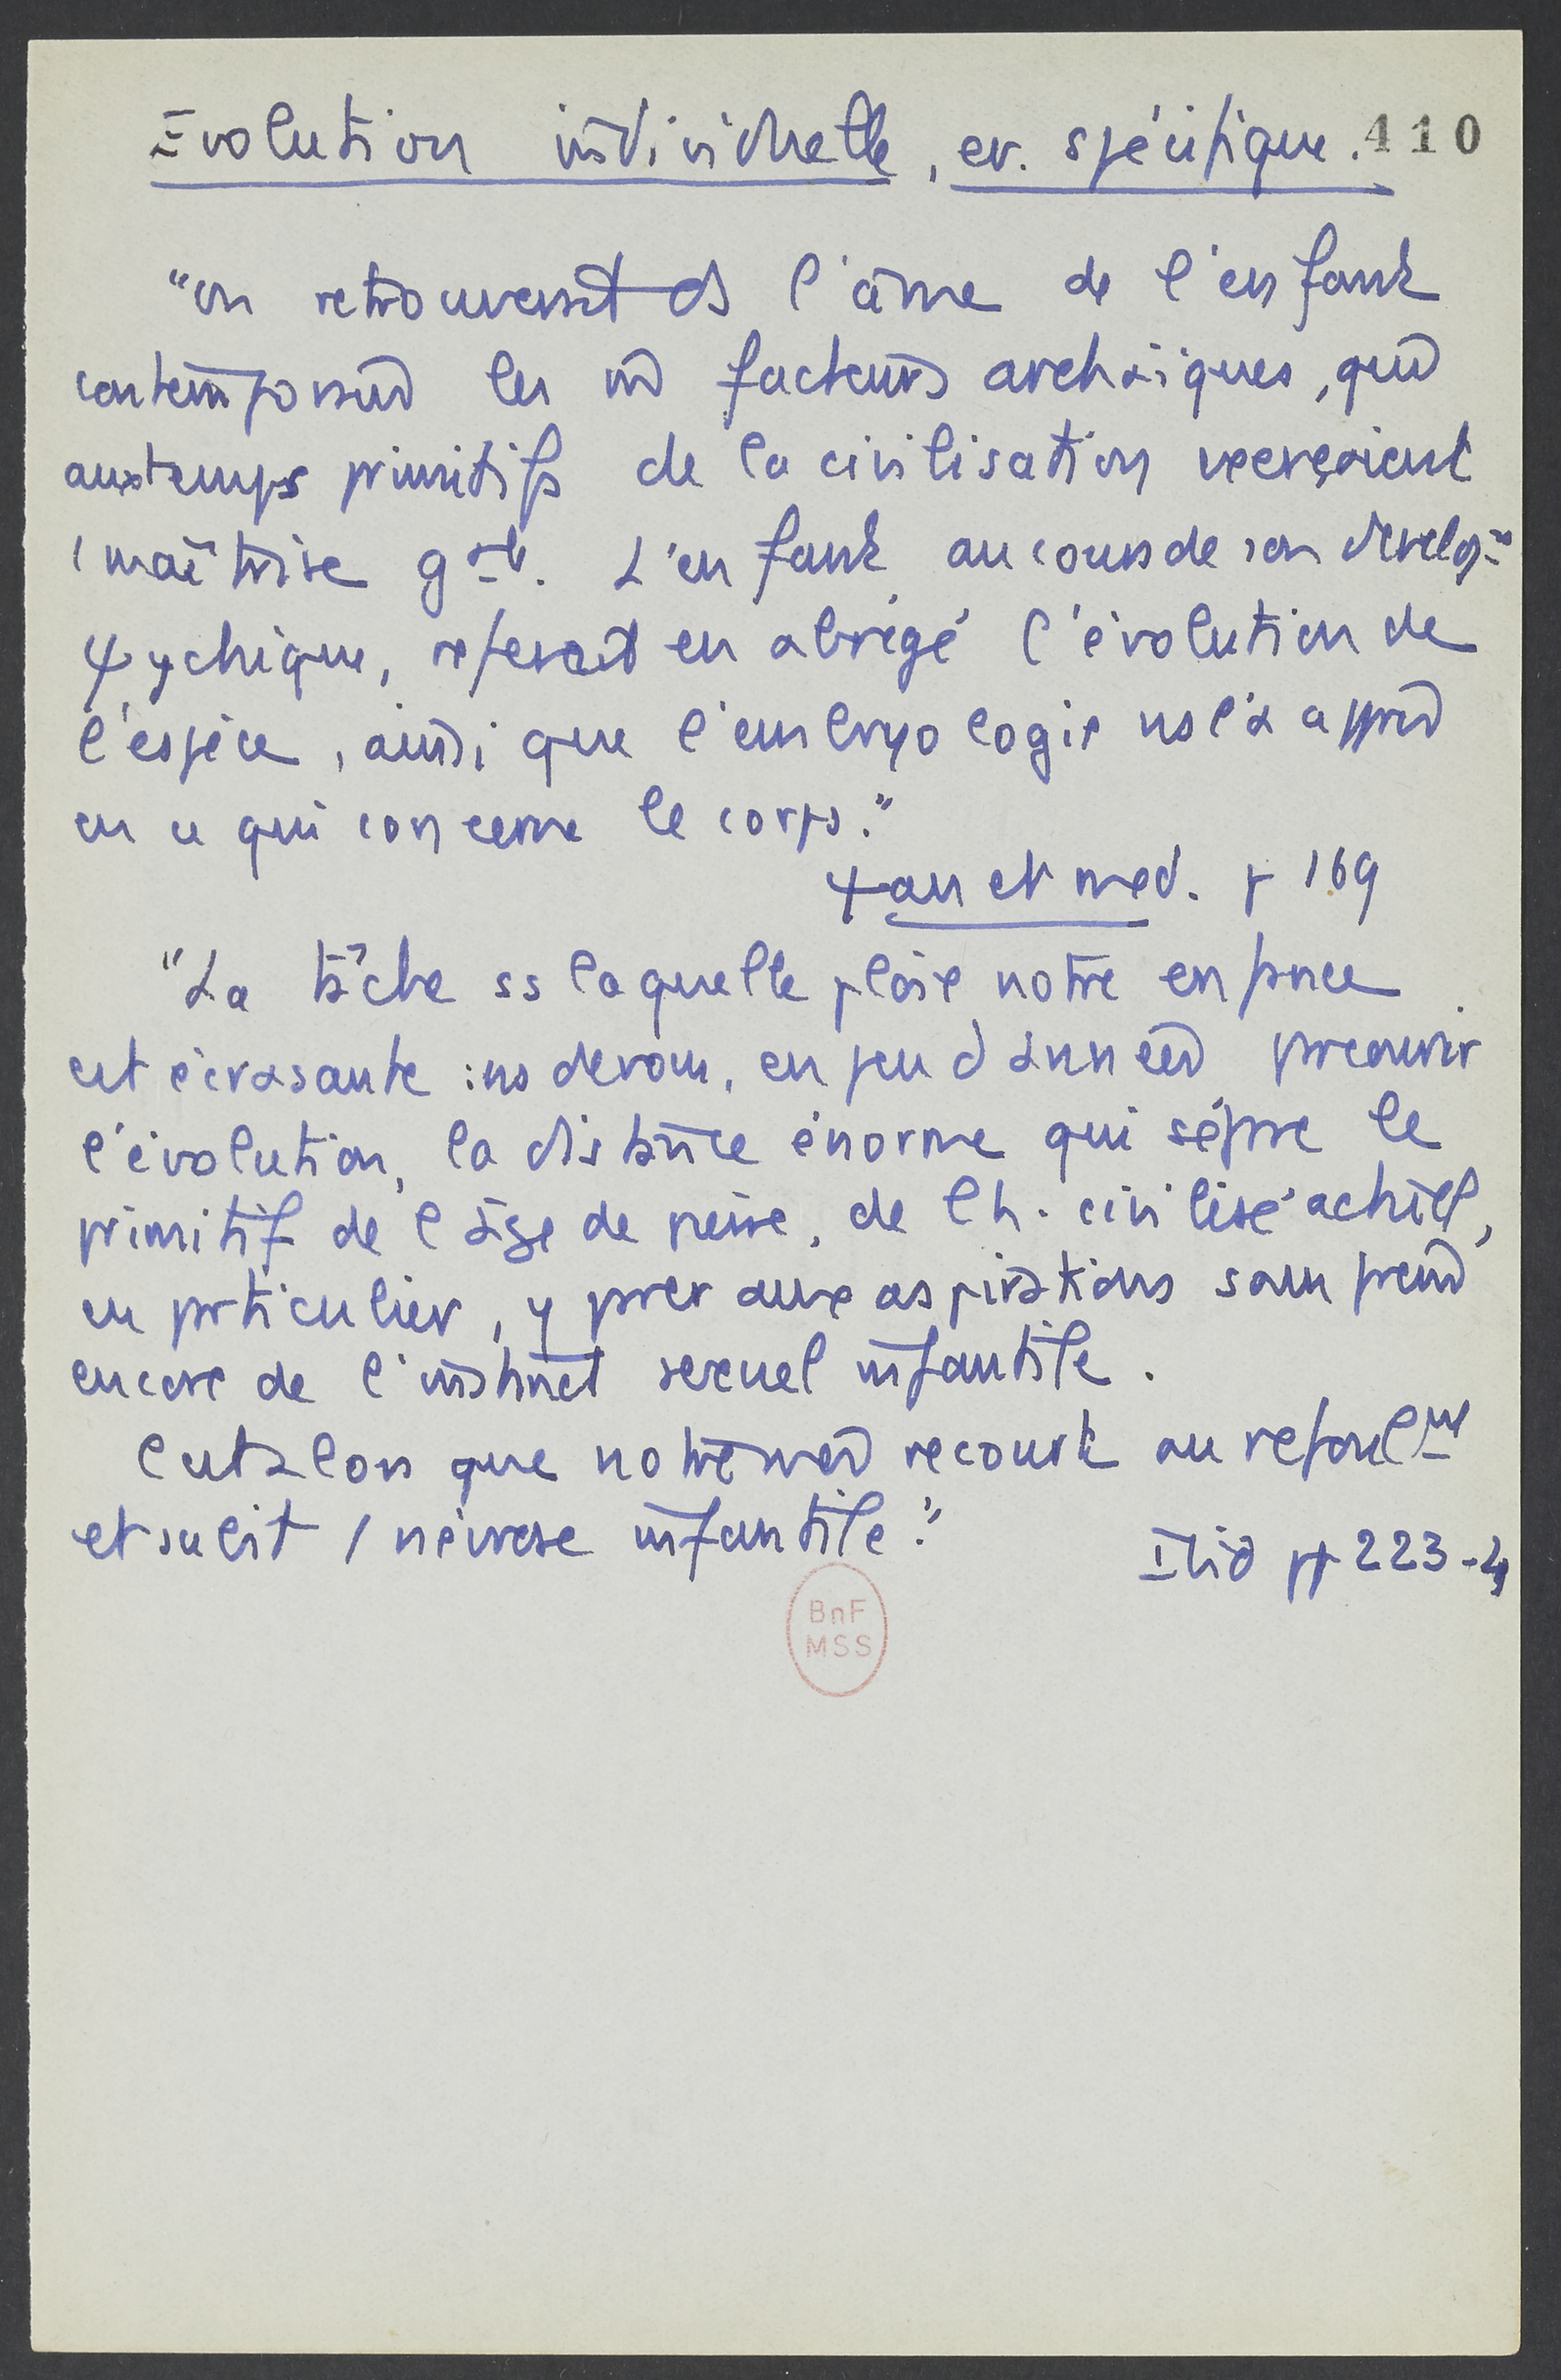 Evolution individuelle, ev. spécifique. 410
"on retrouverait ds l'âme de l'enfant
contemporain les m̂ facteurs archaïques, qui
aux temps primitifs de la civilisation exerçaient
/ maîtrise gale. L'enfant au cours de son developmt
ψychique, referait en abrégé l'évolution de
l'espèce, ainsi que l'embryologie ns l'a appris
en ce qui concerne le corps."
ψan et med. p 169
"La tâche ss laquelle ploie notre enfance
est écrasante : ns devons, en peu d'années parcourir
l'évolution, la distance énorme qui sépare le
primitif de l'âge de pierre, de l'h. civilisé actuel,
en particulier, y parer aux aspirations sans frein
encore de l'instinct sexuel infantile.
C'est alors que notre moi recourt au refoulmt
et subit / névrose infantile."
Ibid pp 223-4
BnF
MSS